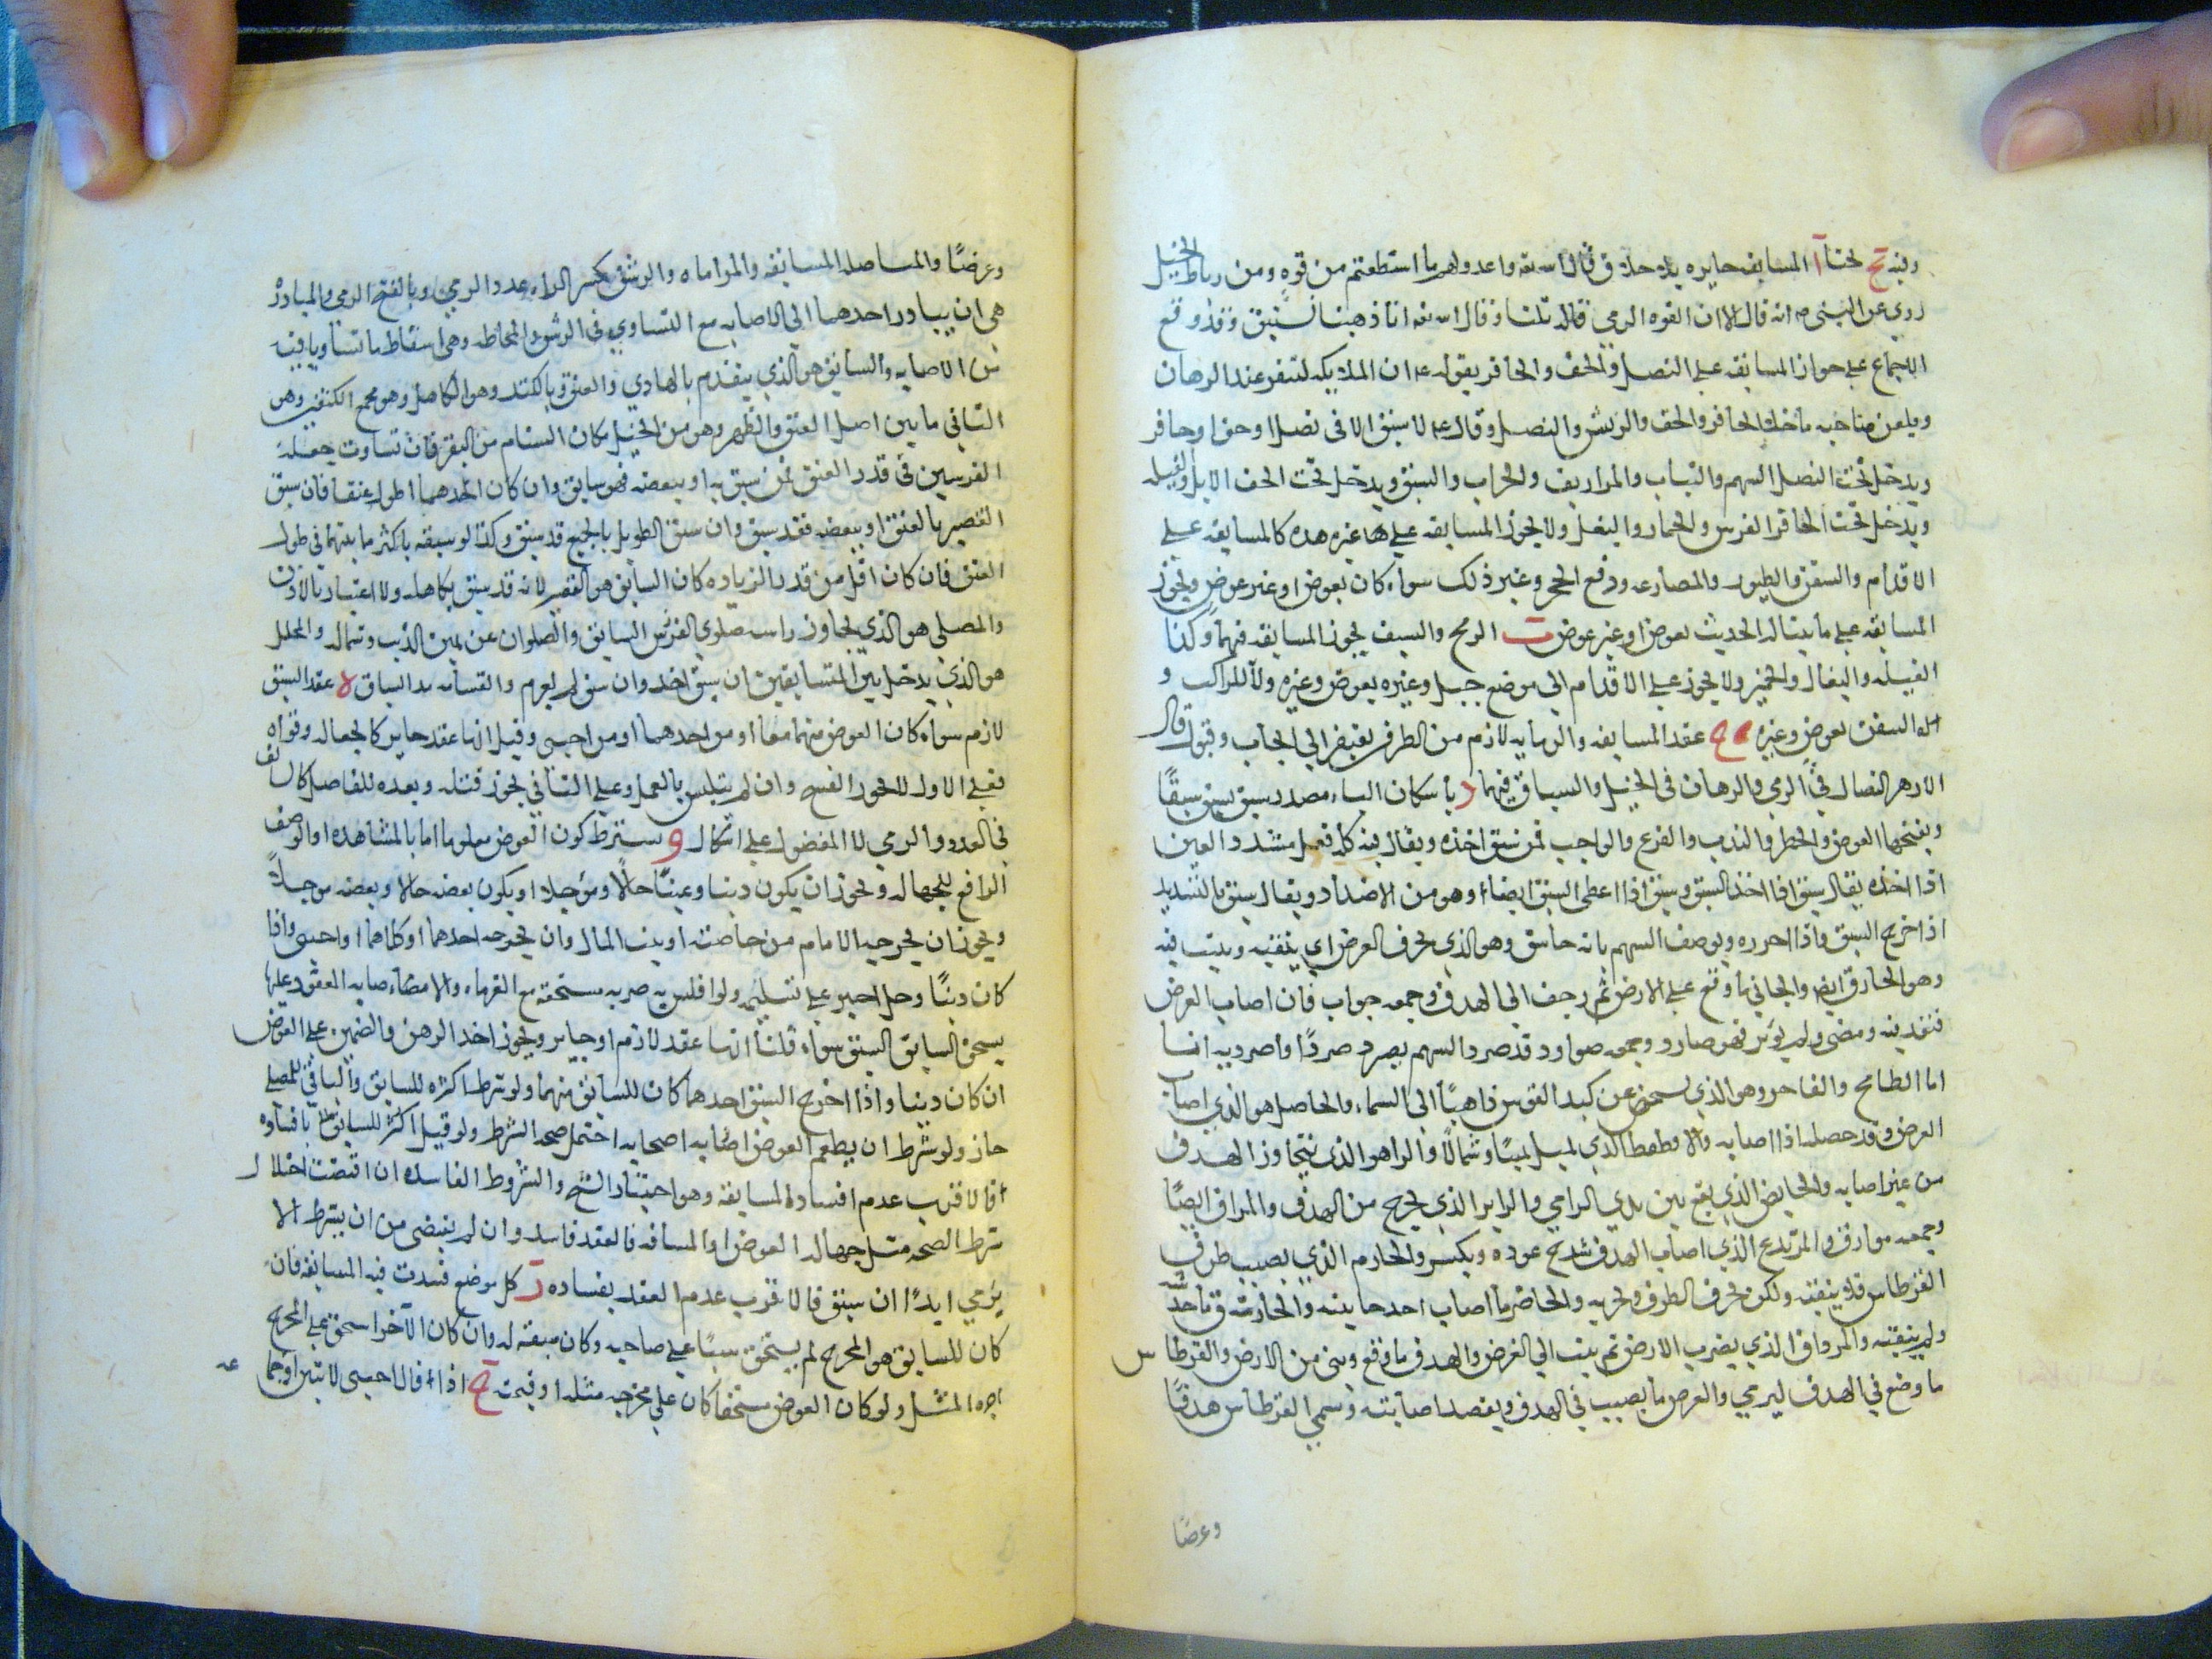 وفيه بحثا آ المسابقه جايزه بلا خلاف قال الله تعه واعدوا لهم ما استطعتم من قوه ومن رباط الخيل
روي عن النبي ص انه قال الا ان القوه الرمي قاله ثلثا وقال الله تعه انا ذهبنا نستبق وقد وقع
الاجماع على جواز المسابقه على النصل والخف والحافر بقوله عه ان الملايكه لتنفر عند الرهان
ويلعن صاحبه ما خلا الحافر والخف والريش والنصل وقال عه لا سبق الا في نصل او خف او حافر
ويدخل تحت النصل السهم والنشاب والمزاريق والحراب والسيف ويدخل تحت الخف الابل والفيله
ويدخل تحت الحافر الفرس والحمار والبغل ولا يجوز المسابقه على غير هذه كالمسابقه على
الاقدام والسفن والطيور والمصارعه ورفع الحجر وغير ذلك سواء كان بعوض او غير عوض ويجوز
المسابقه على ما يتناوله الحديث بعوض او غير عوض ب الرمح والسيف يجوز المسابقه فيهما وكذا
الفيله والبغال والحمير ولا يجوز على الاقدام الى موضع جبل وغيره بعوض وغيره ولا المراكب و
لا السفن بعوض وغيره ج عقد المسابقه والرمايه لازم من الطرف يفتقر الى ايجاب وقبول قال
الازهر النضال في الرمي والرهان في الخيل والسباق فيهما د باسكان الباء مصدر سبق يسبق سبقا
وبفتحها العوض والخطر والندب والقرع والواجب لمن سبق اخذه ويقال فيه كله فعل مشدد العين
اذا اخذه يقال سبق اذا اخذ السبق وسبق اذا اعطى السبق ايضا وهو من الاضداد ويقال سبق بالتشديد
اذا اخرج السبق واذا احرزه ويوصف السهم بانه خاسق وهو الذي يخرق الغرض اي يثقبه ويثبت فيه
وهو الخارق ايضا والحابي ما وقع على الارض ثم زحف الى الهدف وجمعه حواب فان اصاب الغرض
فنفد فيه ومضى ولم يوثر فهو صارد وجمعه صوارد وقد صرد السهم يصرد صردا واصرديه انسا
اما الطامح والفاحر وهو الذي يشخص عن كبد القوس ذاهبا الى السماء والحاصل هو الذي اصاب
الغرض وقد حصله اذا اصابه والا وطعطا الذي يميل يمينا وشمالا والزاهر الذي يتجاوز الهدف
من غير اصابه والحايض الذي يقع بين يدي الرامي والزاير الذي يخرج من الهدف والمراق ايضا
وجمعه موارق والمرتدع الذي اصاب الهدف شدخ عوده وبكسر والخارم الذي يصيب طرف
القرطاس فلا يثقبه ولكن يخرق الطرف ويخرمه والخاصر ما اصاب احد جانبيه والخازق ما خدشه
ولم يثقبه والمزدلف الذي يضرب الارض ثم يثب الى الغرض والهدف ما رفع وبني من الارض والقرطاس
ما وضع في الهدف ليرمي والغرض ما يصيب في الهدف ويقصد اصابته وسمي القرطاس هدفا
وعرضا
وغرضا والمناصله المسابقه والمراماه والرشق بكسر الراء عدد الرمي وبالفتح الرمي والمبادره
هي ان يبادر احدهما الى الاصابه مع التساوي في الرشق والمحاطه وهي اسقاط ما تساويا فيه
من الاصابه والسابق هو الذي يتقدم بالهادي والعنق وبالكتد وهو الكاهل وهو مجمع الكتفين وهو
التافي ما بين اصل العنق والظهر وهو من الخيل مكان السنام من البقر فان تساوت جعله
الفرسين في قدر العنق فمن سبق به او ببعضه فهو سابق وان كان احدهما اطول عنقا فان سبق
القصير بالعنق او ببعضه فقد سبق وان سبق الطويل بالجميع قد سبق وكذا لو سبقه باكثر ما بينهما في طول
العنق فان كان اقل من قدر الزياده كان السابق هو القصير لانه قد سبق بكاهله ولا اعتبار بالاذن
والمصلي هو الذي يحاذي راسه صلوي الفرس السابق والصلوان عن يمين الذنب وشماله والمحلل
هو الذي يدخل بين المتسابقين ان سبق اخذ وان سبق لم يغرم والقسامه بد السباق ه عقد السبق
لازم سواء كان العوض منهما معا او من احدهما او من اجنبي وقيل انها عقد جايز كالجعاله وقواه لف
فعلى الاول لا يجوز الفسخ وان لم يتلبس بالعمل وعلى الثاني يجوز قبله وبعده للفاضل كال
في العدو والرمي لا المفضول على اشكال و يشترط كون العوض معلوما اما بالمشاهده او الوصف
الرافع للجهاله ويجوز ان يكون دينا وعينا حالا ومؤجلا او يكون بعضه حالا وبعضه موجلا
ويجوز ان يخرجه الامام من خاصته او بيت المال وان يخرجه احدهما او كلاهما او اجنبي واذا
كان دينا وحل اجبر على تسليمه ولو افلس به ضرب مستحقه مع الغرماء والامضاء صابه العقود عليها
يستحق السابق السبق سواء قلنا انها عقد لازم او جايز ويجوز اخذ الرهن والضمين على العوض
ان كان دينا واذا اخرج السبق احدهما كان للسابق منهما ولو شرط اكثره للسابق والباقي للمصلي
جاز ولو شرط ان يطعم العوض اصابه اصحابه احتمل صحه الشرط ولو قيل اكثر للسابق بافساده
فالاقرب عدم افساده المسابقه وهو اختيار الشيخ والشروط الفاسده ان اقتضت اخلال
شرط الصحه مثل جهاله العوض او المسافه فالعقد فاسد وان لم يقتضي من ان يشترط الا
يرمي ابدا ان سبق فالاقرب عدم العقد بفساده ز كل موضع فسدت فيه المسابقه فان
كان للسابق هو المخرج لم يستحق شيئا على صاحبه وكان سبقه له وان كان الآخر استحق على المخرج
اجره المثل ولو كان العوض مستحقا كان على مخرجه مثله او قيمته ح اذا قال اجنبي لاثنين او جما عه